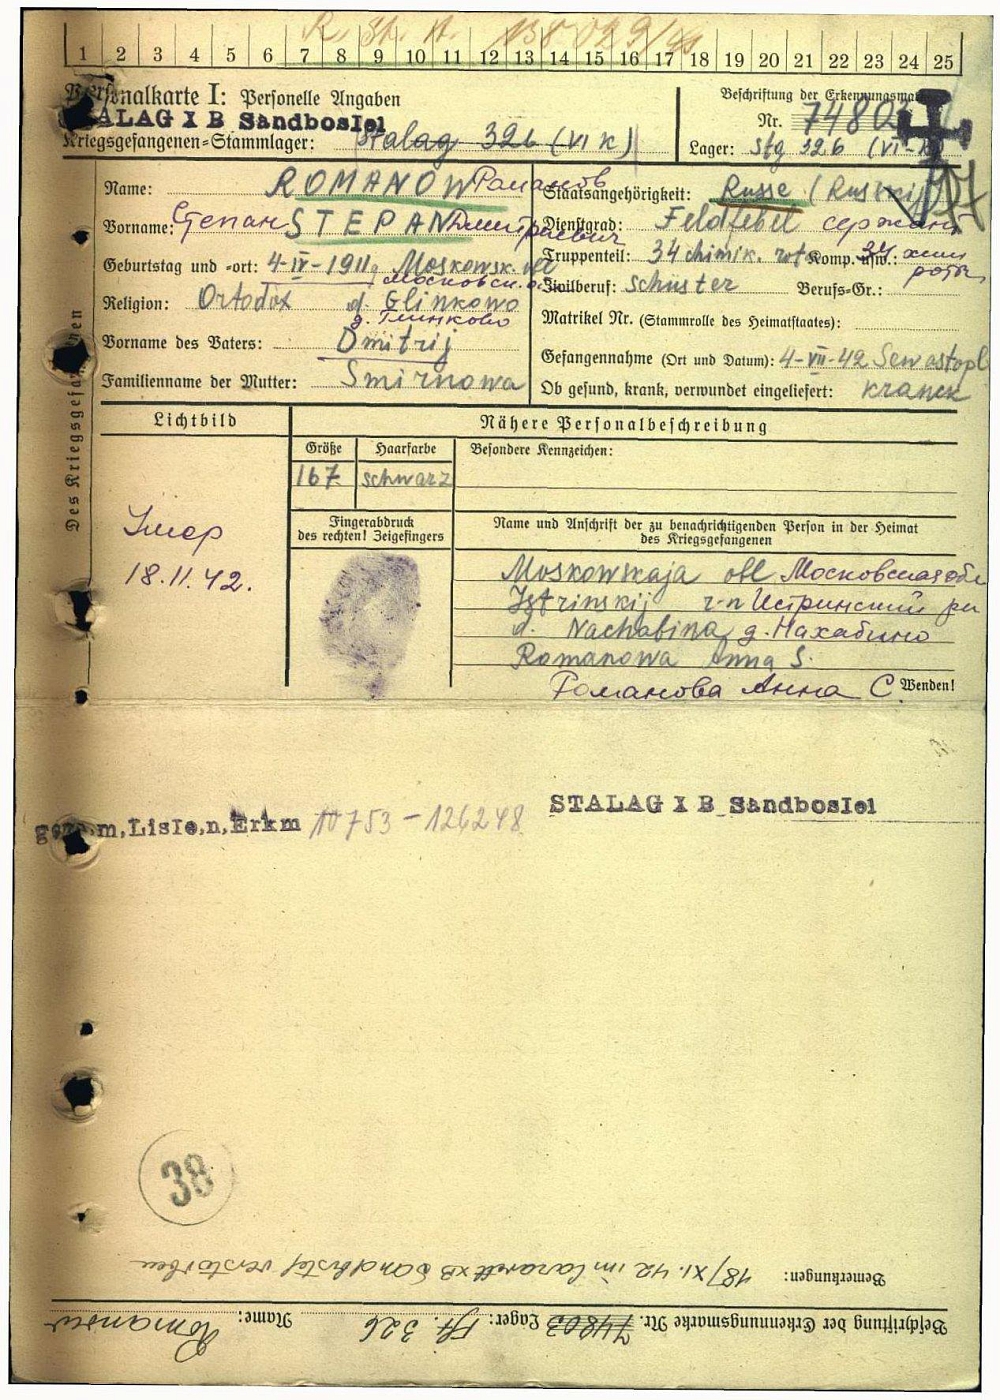 R. St. A. 138 029/40
1 2 3 4 5 6 7 8 9 10 11 12 13 14 15 16 17 18 19 20 21 22 23 24 25
Personalkarte I: Personelle Angaben
STALAG X B Sandbostel
Kriegsgefangenen-Stammlager: Stalag 326 (VI K)
Beschriftung der Erkennungsmarke
Nr. 74803
Lager: Stg 326 (VI-K)
Des Kriegsgefangenen
Name: ROMANOW Романов
Vorname: Степан STEPAN Дмитриевич
Geburtstag und -ort: 4-IV-1911, Moskowsk. obl
Московск.
Religion: Ortodox d. Glinkowo
д. Глинково
Vorname des Vaters: Dmitrij
Familienname der Mutter: Smirnowa
Staatsangehörigkeit: Russe (Russkij)
Dienstgrad: Feldfebel сержант
Truppenteil: 34 chimik. rot Komp. usw.: 34 хим
роты
Zivilberuf: schuster Berufs-Gr.:
Matrikel Nr. (Stammrolle des Heimatstaates):
Gefangennahme (Ort und Datum): 4-VII-42 Sewastopl
Ob gesund, krank, verwundet eingeliefert: kranck
Lichtbild
Умер
18.11.42.
Nähere Personalbeschreibung
Größe Haarfarbe Besondere Kennzeichen:
167 schwarz
Fingerabdruck
des rechten! Zeigefingers
Name und Anschrift der zu benachrichtigenden Person in der Heimat
des Kriegsgefangenen
Moskowskaja obl Московская обл
Istrinskij r-n Истринский рн
d. Nachabina д. Нахабино
Romanowa Anna S.
Романова Анна С
Wenden!
STALAG X B Sandbostel
m, Liste, n, Erkm 10753-126248
38
Bemerkungen: 18/XI. 42 im Lazarett XB Sandbostel verstorben
Beschriftung der Erkennungsmarke Nr. 74803 Lager: 326 Name: Romanow